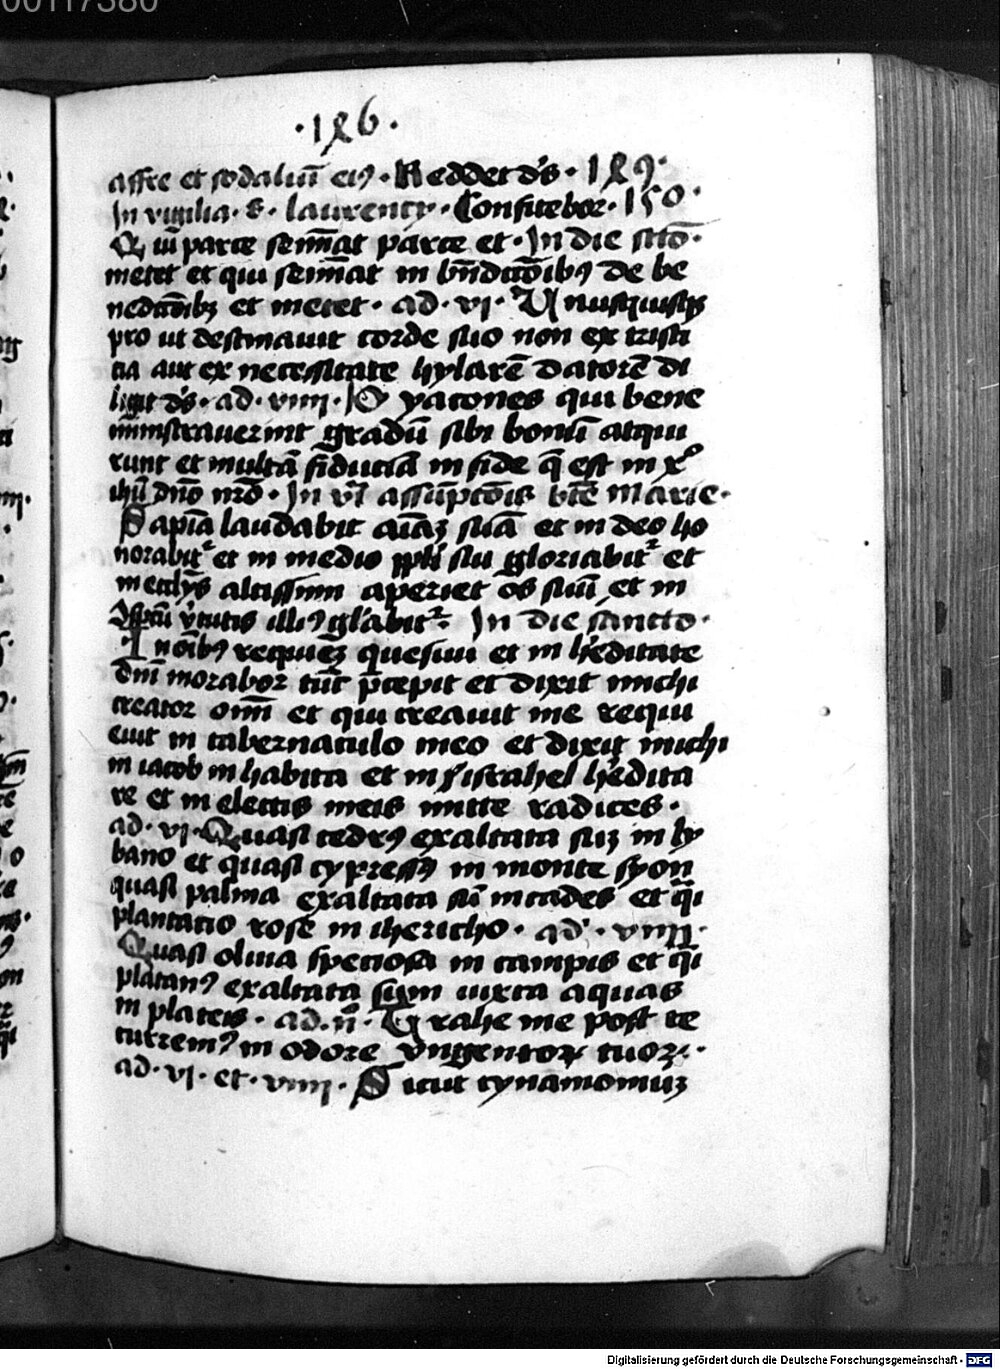 00117380
·186·
affre et sodaliū eiꝰ · Reddet dn̄s · 189·
In vigilia · s · laurencÿ · Confitebor · 150·
Qui parce semīat parce et · In die scō ·
metet et qui semīat in bn̄dictōibꝰ de be
nedictōibꝫ et metet · ad · vi · Vnusquisqꝫ
pro ut destinauit corde suo non ex tristi
cia aut ex necessitate hylarē datorē di
ligit ds̄ · ad · viiii · Dyacones qui bene
mīnistrauerint gradū sibi bonū acqui
runt et multā fiduciā in fide q̄ est in xᵒ
ihū dn̄o nr̄o · In vīl assūptōis btē̄ marie ·
Sapīa laudabit aīaꝫ suā et in deo ho
norabit᷑ et in medio ppl̄i sui gloriabit᷑ et
in eccl̄ijs altissimi aperiet os suū et in
9spc̄tu v̄tutis illiꝰ gl̄abit᷑ · In die sancto ·
In oībꝰ requieꝫ quesiui et in h̄editate
dn̄i morabor tūc p̄cepit et dixit michi
creator oīm et qui creauit me requi
euit in tabernaculo meo et dixit michi
in iacob inhabita et in ysrahel h̄edita
re et in electis meis mitte radices ·
ad · vi · Quasi cedrꝰ exaltata suꝫ in ly
bano et quasi cypressꝰ in monte syon
quasi palma exaltata sū in cades et q̄si
plantacio rose in ihericho · ad · viiii ·
Quasi oliua speciosa in campis et q̄si
platanꝰ exaltata sum iuxta aquas
in plateis · ad · ñ · Trahe me post te
curremꝰ in odore vngentoꝝ tuoꝝ ·
ad · vi · et · viiii · Sicut cynamomuꝫ
Digitalisierung gefördert durch die Deutsche Forschungsgemeinschaft - DFG